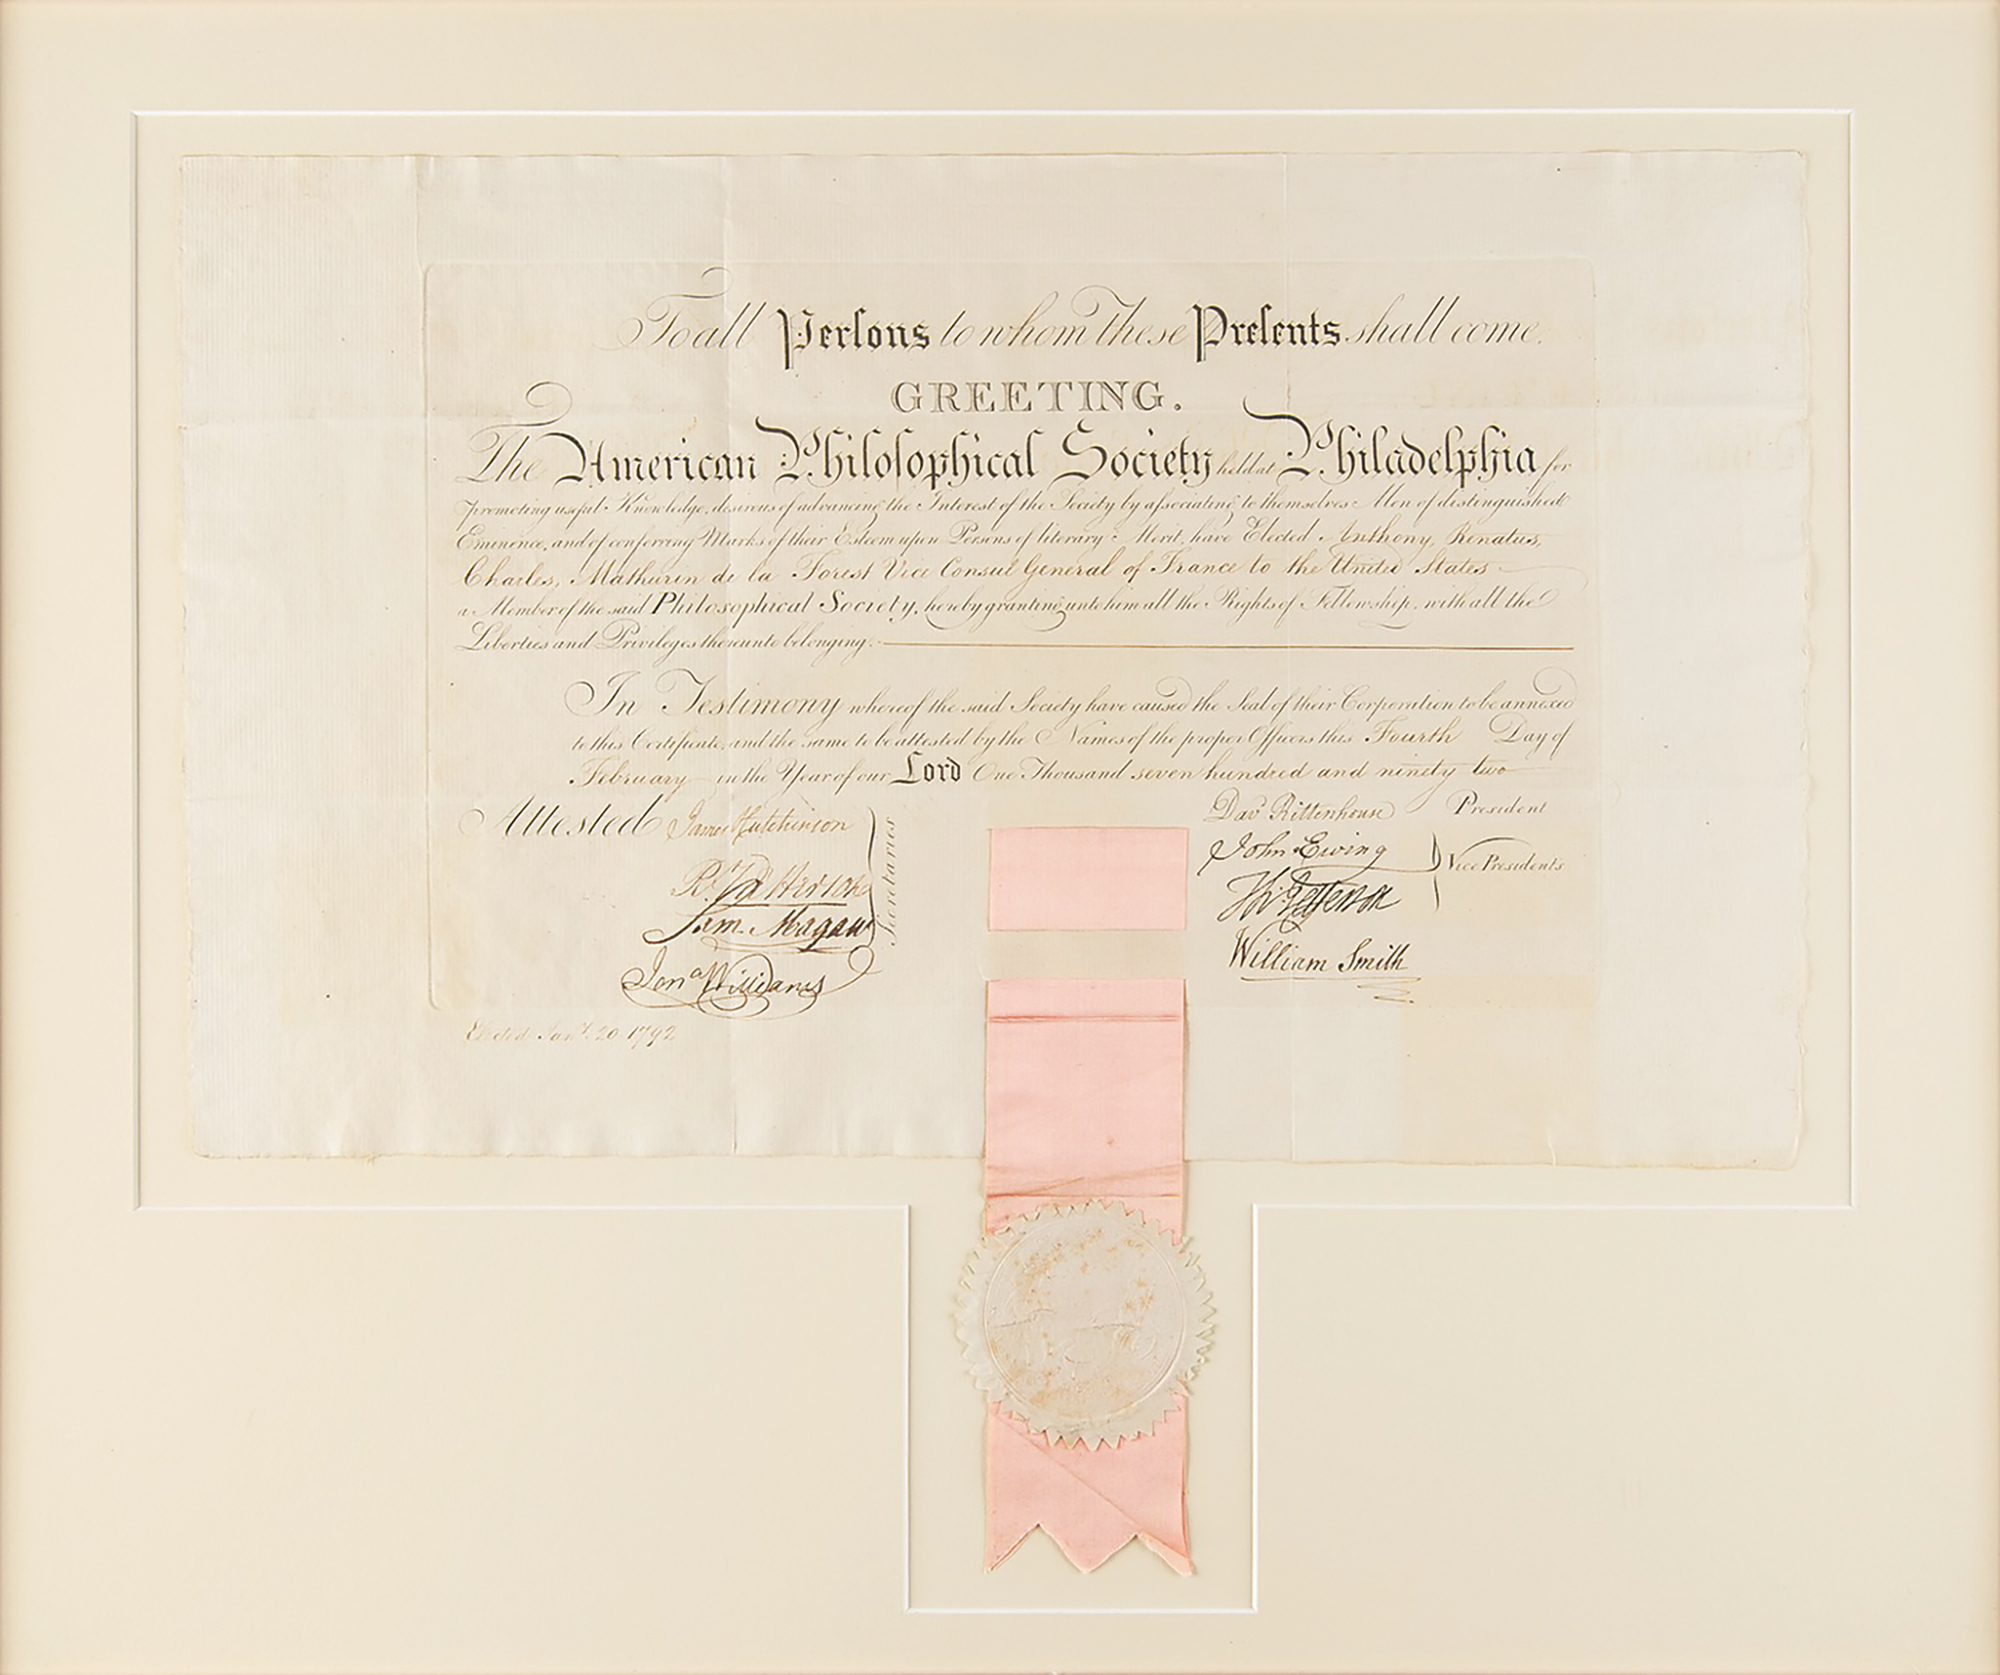 To all Perſons to whom These Preſents shall come.
GREETING.
The American Philoſophical Society held at Philadelphia for
promoting useful Knowledge, desirous of advancing the Interest of the Society by aſsociating to themselves Men of distinguished
Eminence, and of conferring Marks of their Esteem upon Persons of literary Merit, have Elected Anthony, Renatus,
Charles, Mathurin de la Forest Vice Consul General of France to the United States
a Member of the said Philosophical Society, hereby granting unto him all the Rights of Fellowship, with all the
Liberties and Privileges thereunto belonging.
In Testimony whereof the said Society have caused the Seal of their Corporation to be annexed
to this Certificate, and the same to be attested by the Names of the proper Officers this Fourth Day of
February in the Year of our Lord One Thousand seven hundred and ninety two
Attested James Hutchinson
Sam. Magaw
Jona Williams
Secretaries
Dav Rittenhouse President
John Ewing
Th: Jefferson
William Smith
Vice Presidents
Elected Jany. 20 1792